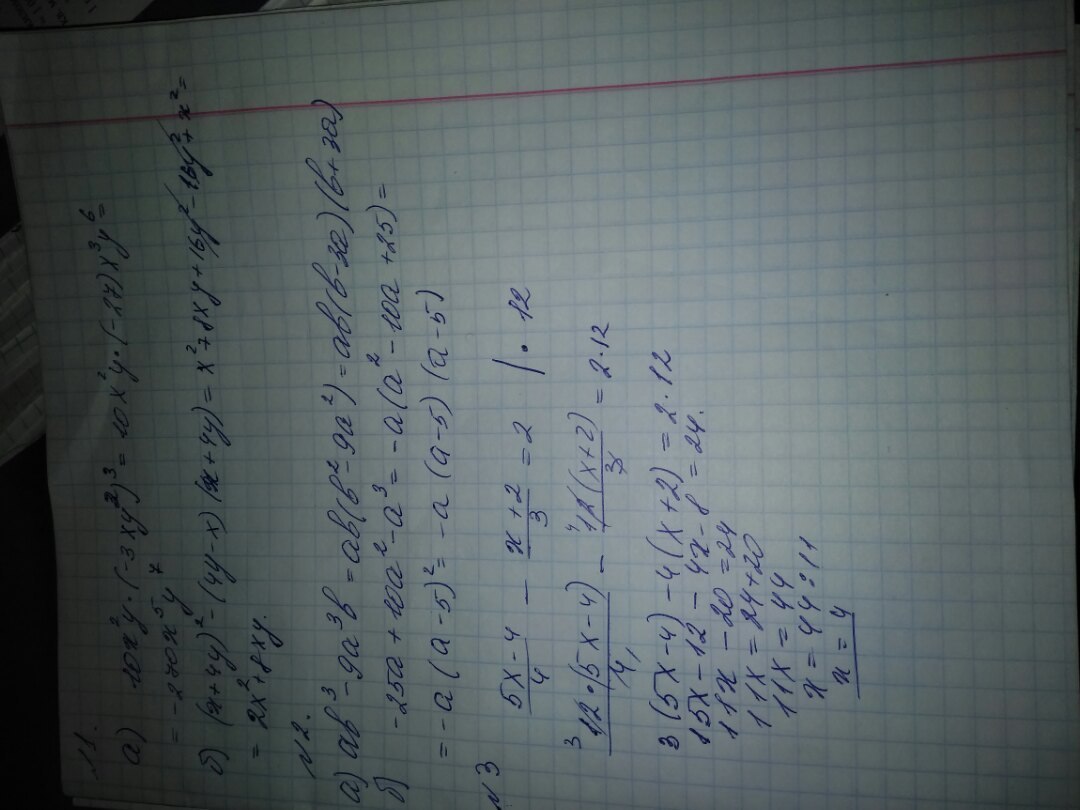 N1.
а) 10x²y·(-3xy²)³ = 10x²y·(-27)x³y⁶ =
= -270x⁵y⁷
б) (x+4y)² - (4y-x)(x+4y) = x²+8xy+16y²-16y²+x² =
= 2x²+8xy.
N2.
а) ab³ - 9a³b = ab(b²-9a²) = ab(b-3a)(b+3a)
б) -25a+10a²-a³ = -a(a²-10a+25) =
= -a(a-5)² = -a(a-5)(a-5)
N3
(5x-4)/4 - (x+2)/3 = 2 |·12
³12·(5x-4)/4 - ⁴12(x+2)/3 = 2·12
3(5x-4)-4(x+2) = 2·12
15x-12-4x-8 = 24.
11x-20=24
11x=24+20
11x=44
x=44:11
x=4